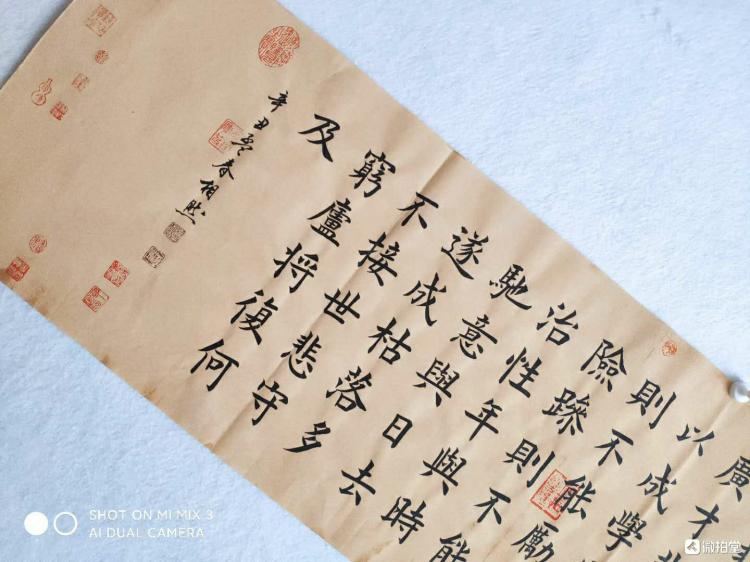 廣才非
以成學
則不能勵
險躁則不能
治性年與時
馳意與日去
遂成枯落多
不接世悲守
窮廬將復何
及
辛丑春相然
SHOT ON MI MIX 3
AI DUAL CAMERA
微拍堂